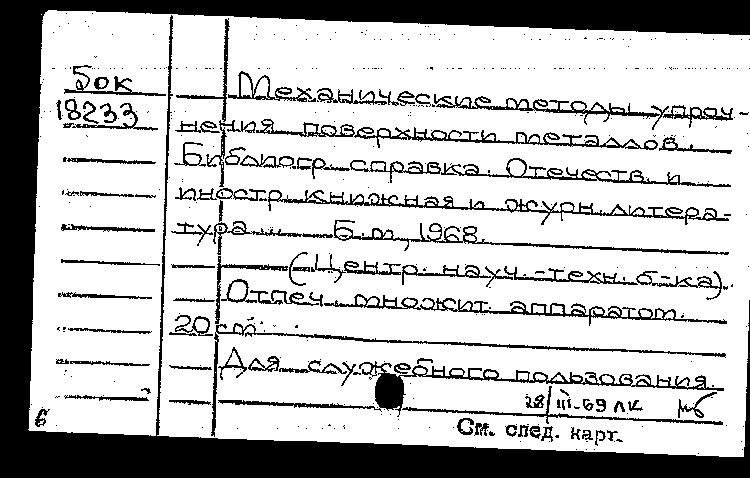 Бок
18233
Механические методы упроч-
нения поверхности металлов.
Библиогр. справка. Отечеств. и
иностр. книжная и журн. литера-
тура ... Б.м., 1968.
(Центр. науч.-техн. б-ка).
Отпеч. множит. аппаратом.
20 см.
Для служебного пользования.
28/III-69 ЛК
См. след. карт.
6